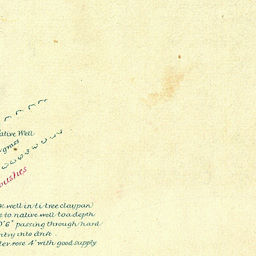 ative Well
grass
bushes
k well in ti tree claypan
to native well to a depth
0'6" passing through hard
ntry into drift
ter rose 4' with good supply